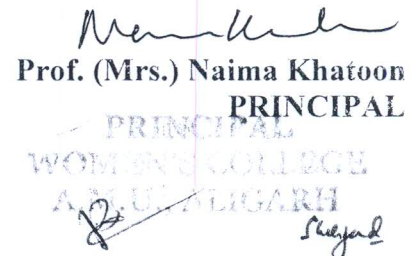 Prof. (Mrs.) Naima Khatoon
PRINCIPAL
PRINCIPAL
WOMEN'S COLLEGE
A.M.U. ALIGARH